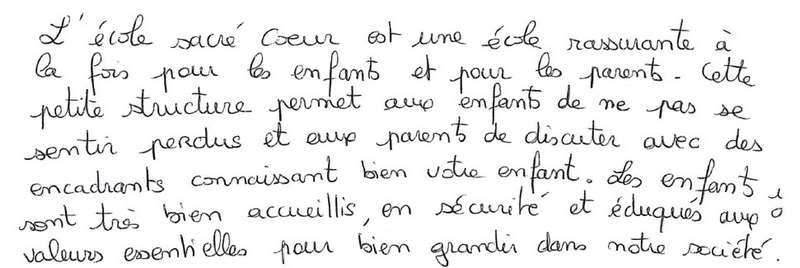 L'école sacré Coeur est une école rassurante à
la fois pour les enfants et pour les parents. Cette
petite structure permet aux enfants de ne pas se
sentir perdus et aux parents de discuter avec des
encadrants connaissant bien votre enfant. Les enfants
sont très bien accueillis, en sécurité et éduqués aux
valeurs essentielles pour bien grandir dans notre société.